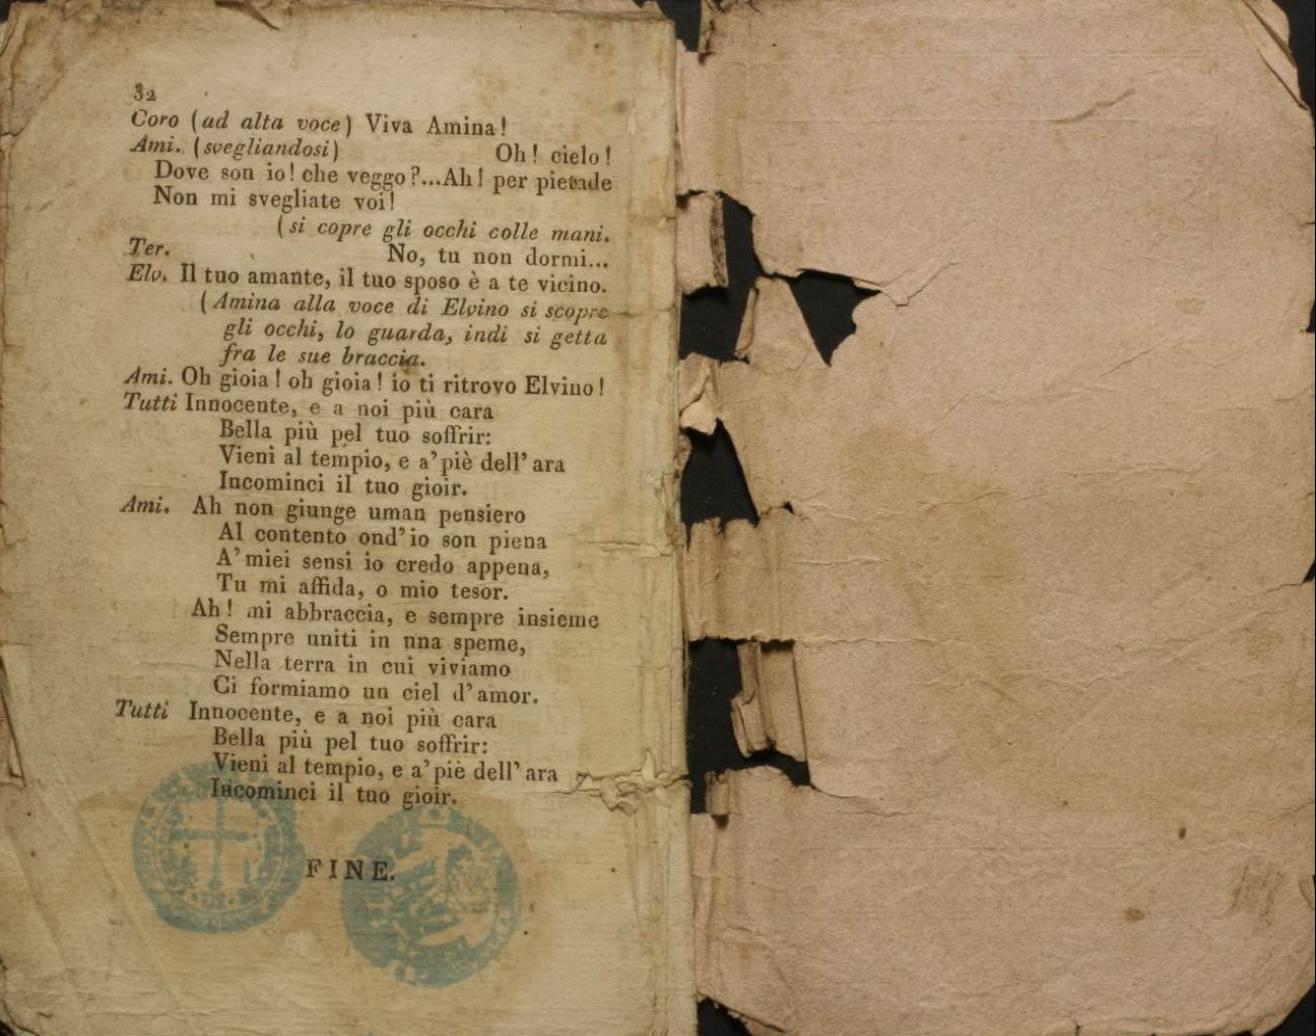 32
Coro (ad alta voce) Viva Amina!
Ami. (svegliandosi) Oh! cielo!
Dove son io! che veggo?...Ah! per pietade
Non mi svegliate voi!
(si copre gli occhi colle mani.
Ter. No, tu non dormi...
Elv. Il tuo amante, il tuo sposo è a te vicino.
(Amina alla voce di Elvino si scopre
gli occhi, lo guarda, indi si getta
fra le sue braccia.
Ami. Oh gioia! oh gioia! io ti ritrovo Elvino!
Tutti Innocente, e a noi più cara
Bella più pel tuo soffrir:
Vieni al tempio, e a' piè dell' ara
Incominci il tuo gioir.
Ami. Ah non giunge uman pensiero
Al contento ond' io son piena
A' miei sensi io credo appena,
Tu mi affida, o mio tesor.
Ah! mi abbraccia, e sempre insieme
Sempre uniti in una speme,
Nella terra in cui viviamo
Ci formiamo un ciel d' amor.
Tutti Innocente, e a noi più cara
Bella più pel tuo soffrir:
Vieni al tempio, e a' piè dell' ara
Incominci il tuo gioir.
FINE.